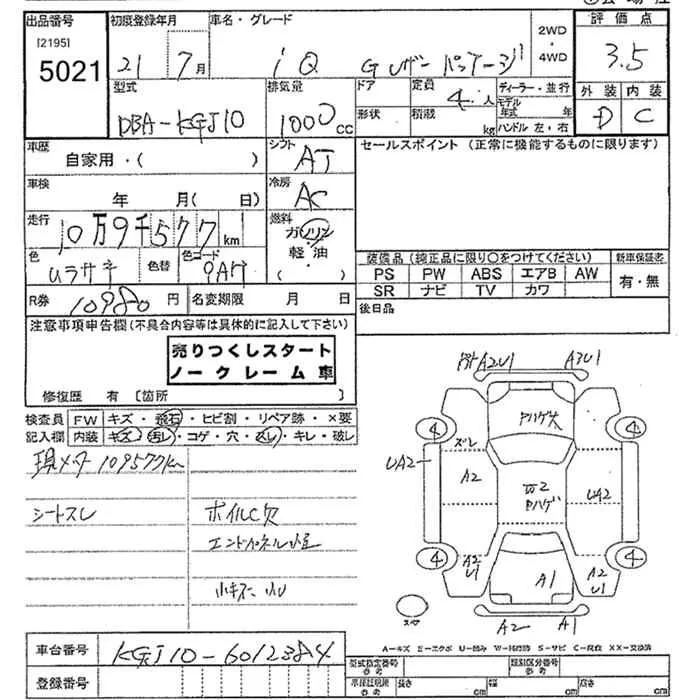 出品番号 [2195] 5021
初度登録年月 21 7月
車名・グレード iQ Gレザーパッケージ
2WD・4WD
評価点 3.5
外装 D 内装 C
型式 DBA-KGJ10
排気量 1000cc
ドア 形状
定員 4人
積載 kg
ディーラー・並行
モデル年式 年
ハンドル 左・右
車歴 自家用・( )
シフト AT
セールスポイント (正常に機能するものに限ります)
車検 年 月(日)
冷房 AC
走行 10万9千577km
燃料 ガソリン 軽油 ・( )
色 ムラサキ 色替 色コード 9AH
装備品 (純正品に限り○をつけてください) 新車保証書
PS PW ABS エアB AW 有・無
SR ナビ TV カワ
R券 10980円 名変期限 月 日
後日品
注意事項申告欄(不具合内容等は具体的に記入して下さい)
売りつくしスタート
ノークレーム車
修復歴 有 〔箇所
検査員 FW キズ・飛石・ヒビ割・リペア跡・×要
記入欄 内装 キズ・汚レ・コゲ・穴・スレ・キレ・破レ
現メータ 109577km
シートスレ
ホイルC欠
小キズ 凹
A2U1 A3U1
Pハゲ大
4 4
ズレ
UA2 A2 W2 Pハゲ UA2
4 4
A2 U1 A1 A2 U1
スペア
A2 A1
A-キズ E-エクボ U-凹み W-補修跡 S-サビ C-腐食 XX-交換済
車台番号 KGJ10-6012384
型式指定番号 類別区分番号
登録番号
車庫証明用参考 長さ cm 幅 cm 高さ cm